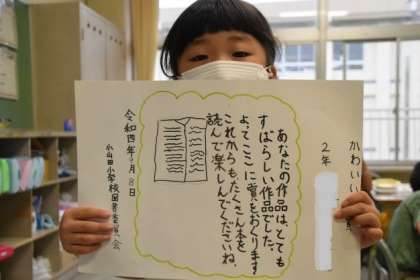 かわいい
2年
あなたの作品は、とても
すばらしい作品でした。
よってここに賞をおくります
これからもたくさん本を
読んで楽しんでくださいね。
令和四年 月8日
小山田小学校図書委員会